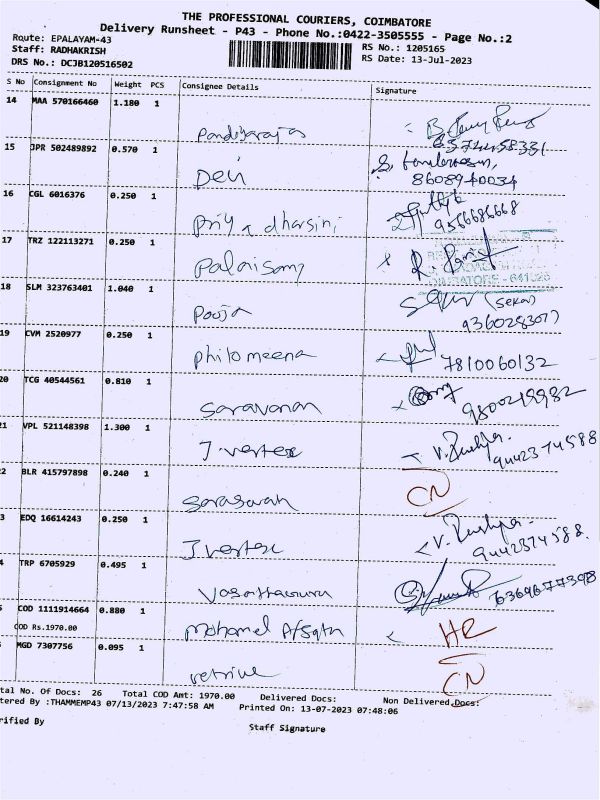 THE PROFESSIONAL COURIERS, COIMBATORE
Delivery Runsheet - P43 - Phone No.:0422-3505555 - Page No.:2
Route: EPALAYAM-43
Staff: RADHAKRISH
DRS No.: DCJB120516502
RS No.: 1205165
RS Date: 13-Jul-2023
S No Consignment No Weight PCS Consignee Details Signature
14 MAA 570166460 1.180 1
15 JPR 502489892 0.570 1 Devi
8608940034
16 CGL 6016376 0.250 1 Priya dharsini
9566686668
17 TRZ 122113271 0.250 1 Palanisamy
18 SLM 323763401 1.040 1 Pooja (Sekar)
19 CVM 2520977 0.250 1 philomeena 7810060132
20 TCG 40544561 0.810 1 Saravanan
21 VPL 521148398 1.300 1 J. vertex V. Pushpa.
9442374588
22 BLR 415797898 0.240 1 CN
23 EDQ 16614243 0.250 1 J vertex V. Pushpa.
9442374588.
24 TRP 6705929 0.495 1 6369677398
COD 1111914664 0.880 1 HR
COD Rs.1970.00
MGD 7307756 0.095 1 retrive CN
tal No. Of Docs: 26 Total COD Amt: 1970.00 Delivered Docs: Non Delivered Docs:
tered By :THAMMEMP43 07/13/2023 7:47:58 AM Printed On: 13-07-2023 07:48:06
rified By
Staff Signature